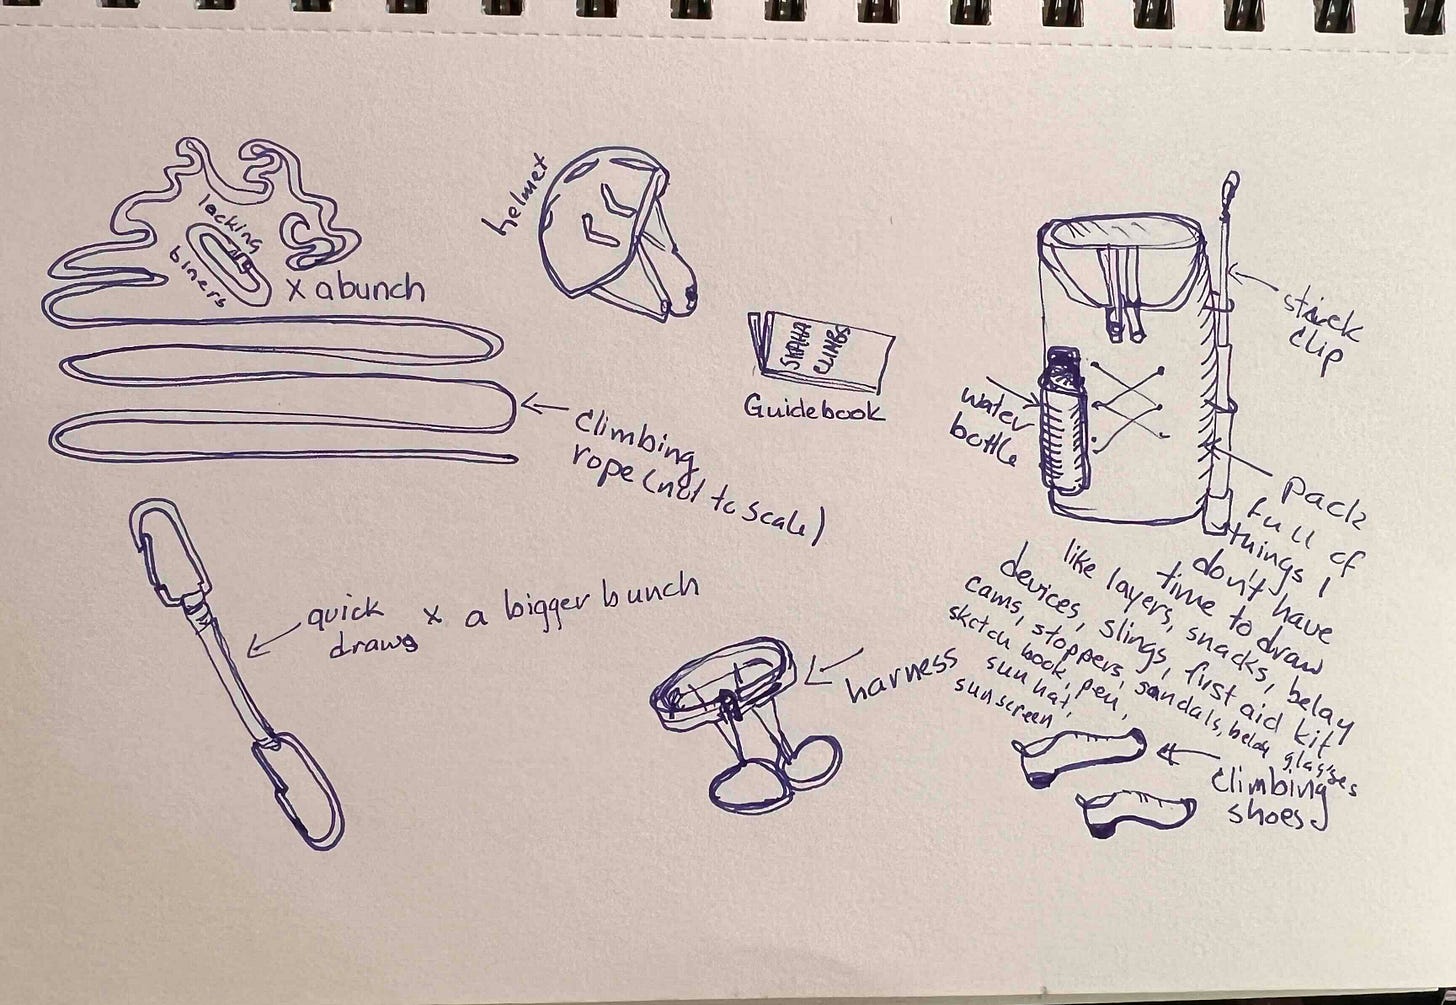 locking
biners
x a bunch
helmet
SKAHA
CLIMBS
Guidebook
stick
clip
water
bottle
climbing
rope (not to scale)
quick
draws
x a bigger bunch
harness
pack
full of
things I
don't have
time to draw
like layers, snacks, belay
devices, slings, first aid kit
cams, stoppers, sandals, belay glasses
sketch book, pen,
sun hat,
sunscreen
climbing
shoes